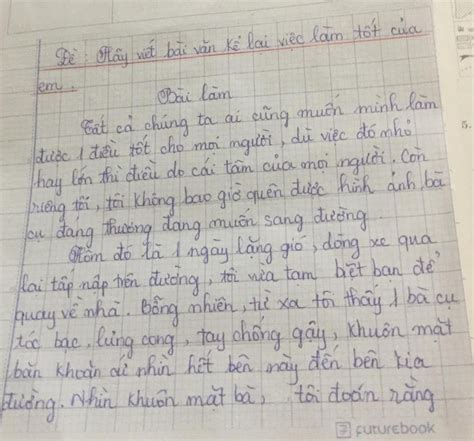 Đề: Hãy viết bài văn kể lại việc làm tốt của
em.
Bài làm
Tất cả chúng ta ai cũng muốn mình làm
được 1 điều tốt cho mọi người, dù việc đó nhỏ
hay lớn thì điều do cái tâm của mọi người. Còn
riêng tôi, tôi không bao giờ quên được hình ảnh bà
cụ đáng thương đang muốn sang đường.
Hôm đó là 1 ngày lặng gió, dòng xe qua
lại tấp nập trên đường, tôi vừa tạm biệt bạn để
quay về nhà. Bỗng nhiên, từ xa tôi thấy 1 bà cụ
tóc bạc, lưng cong, tay chống gậy, khuôn mặt
băn khoăn cứ nhìn hết bên này đến bên kia
đường. Nhìn khuôn mặt bà, tôi đoán rằng
futurebook